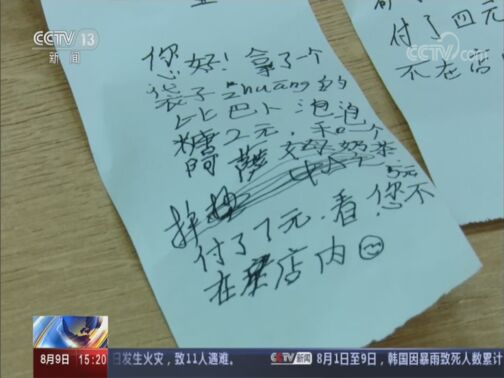 CCTV 13
新闻
CCTV.com
付了四元
不在
您好！拿了一个
袋子zhuang的
比巴卜泡泡
糖2元，和一个
阿萨姆奶茶 5元
付了7元，看您不
在店内
8月9日 15:20 日发生火灾，致11人遇难。 CCTV新闻 8月1日至9日，韩国因暴雨致死人数累计